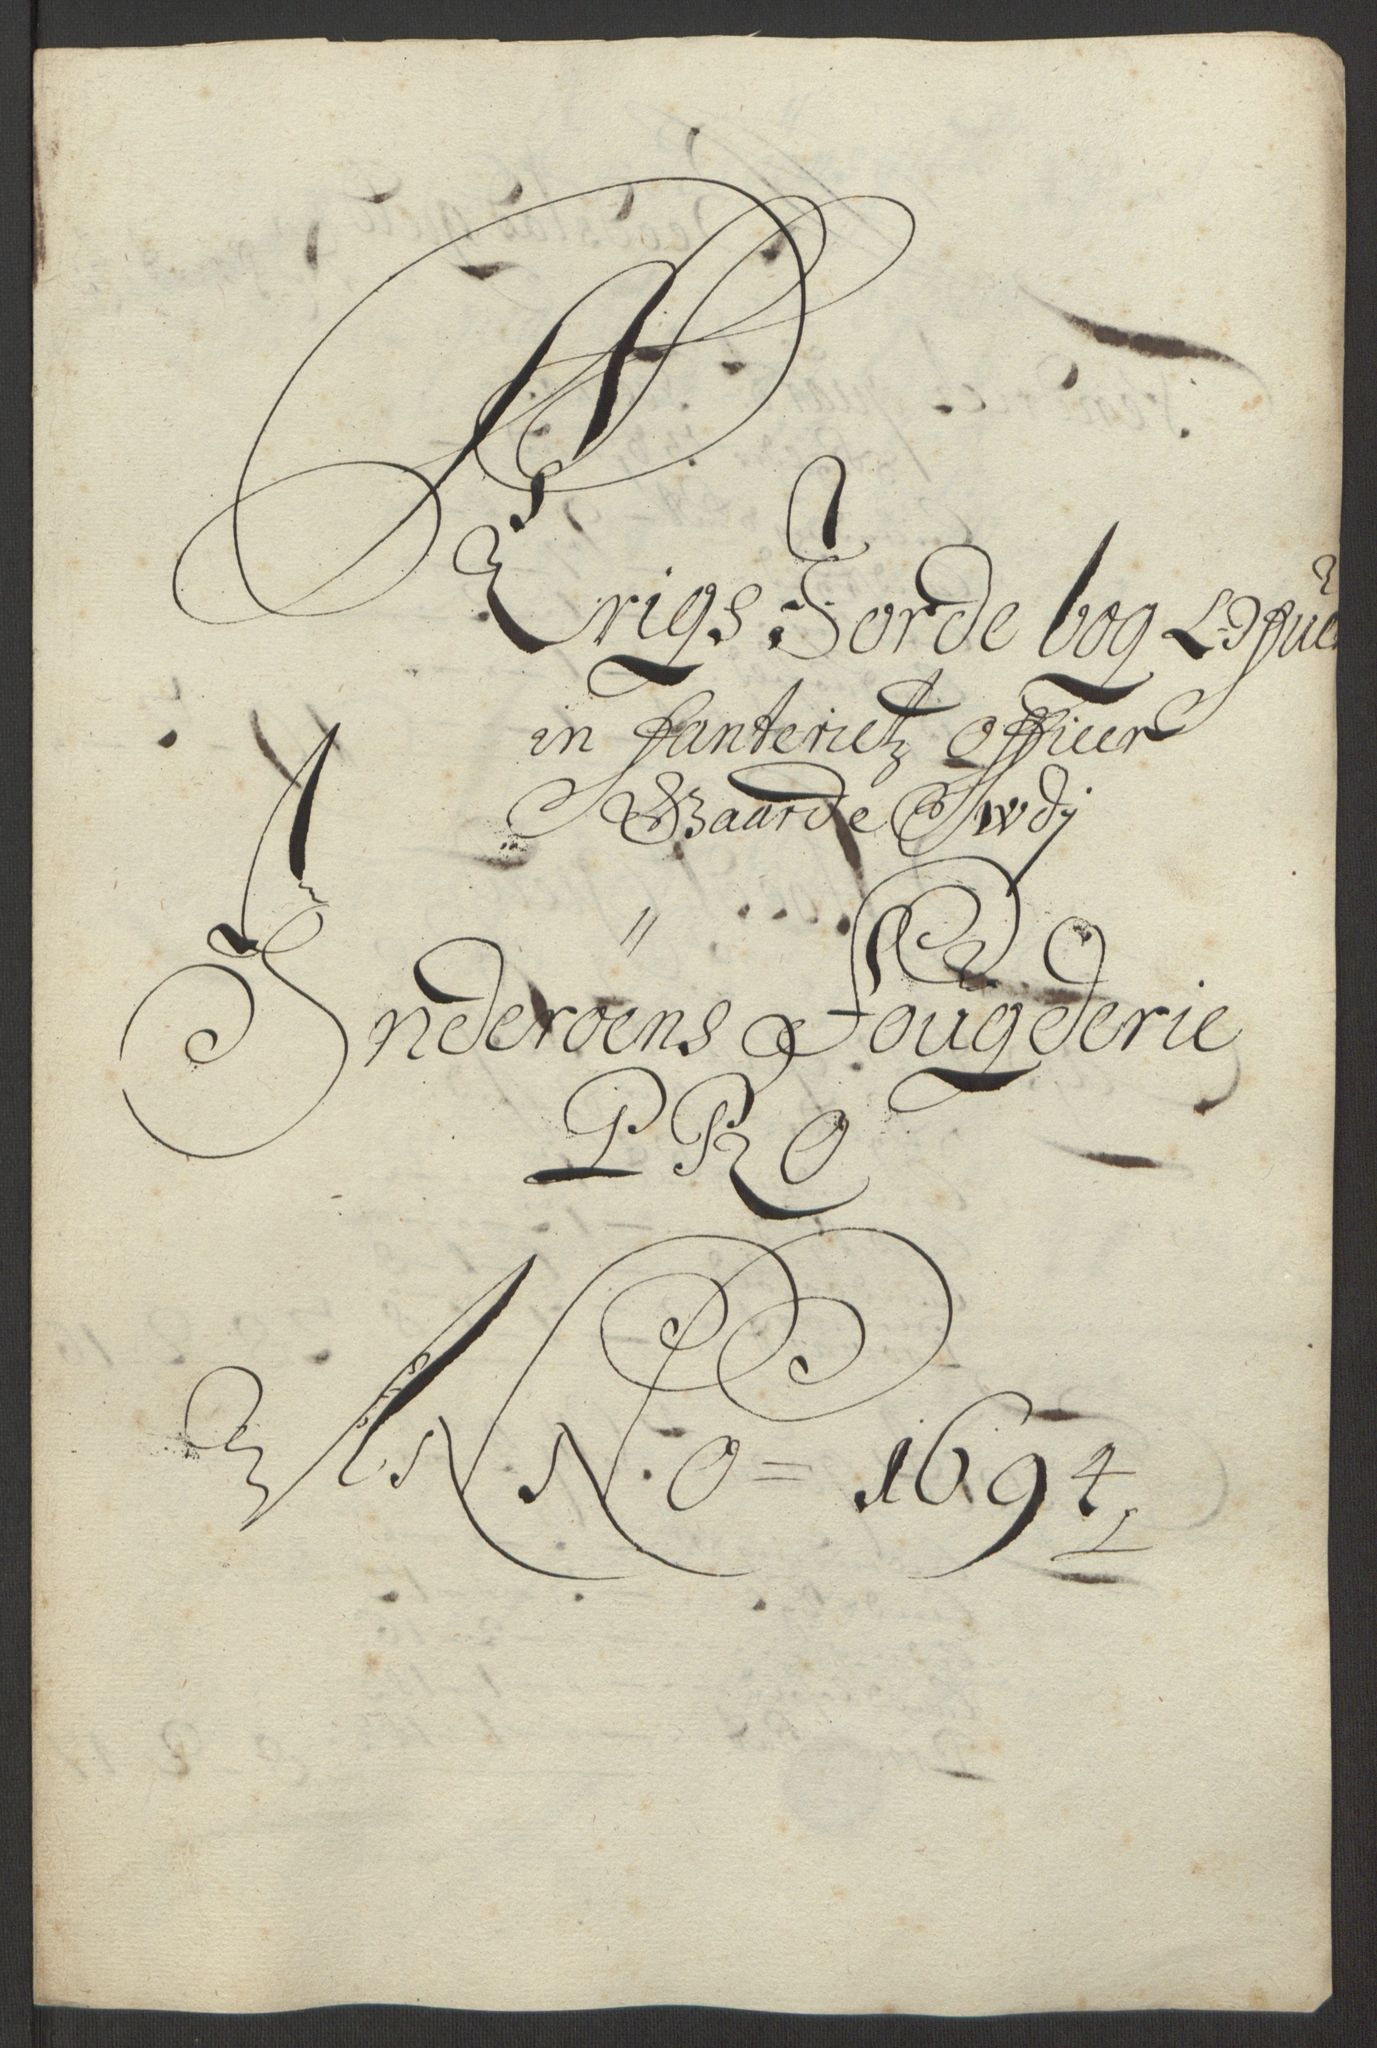 Krigs Jorde bog Offuer
in fanterietz Officer
Gaarde Udj
Inderoens Fougderie
PRO
ANNO = 1694